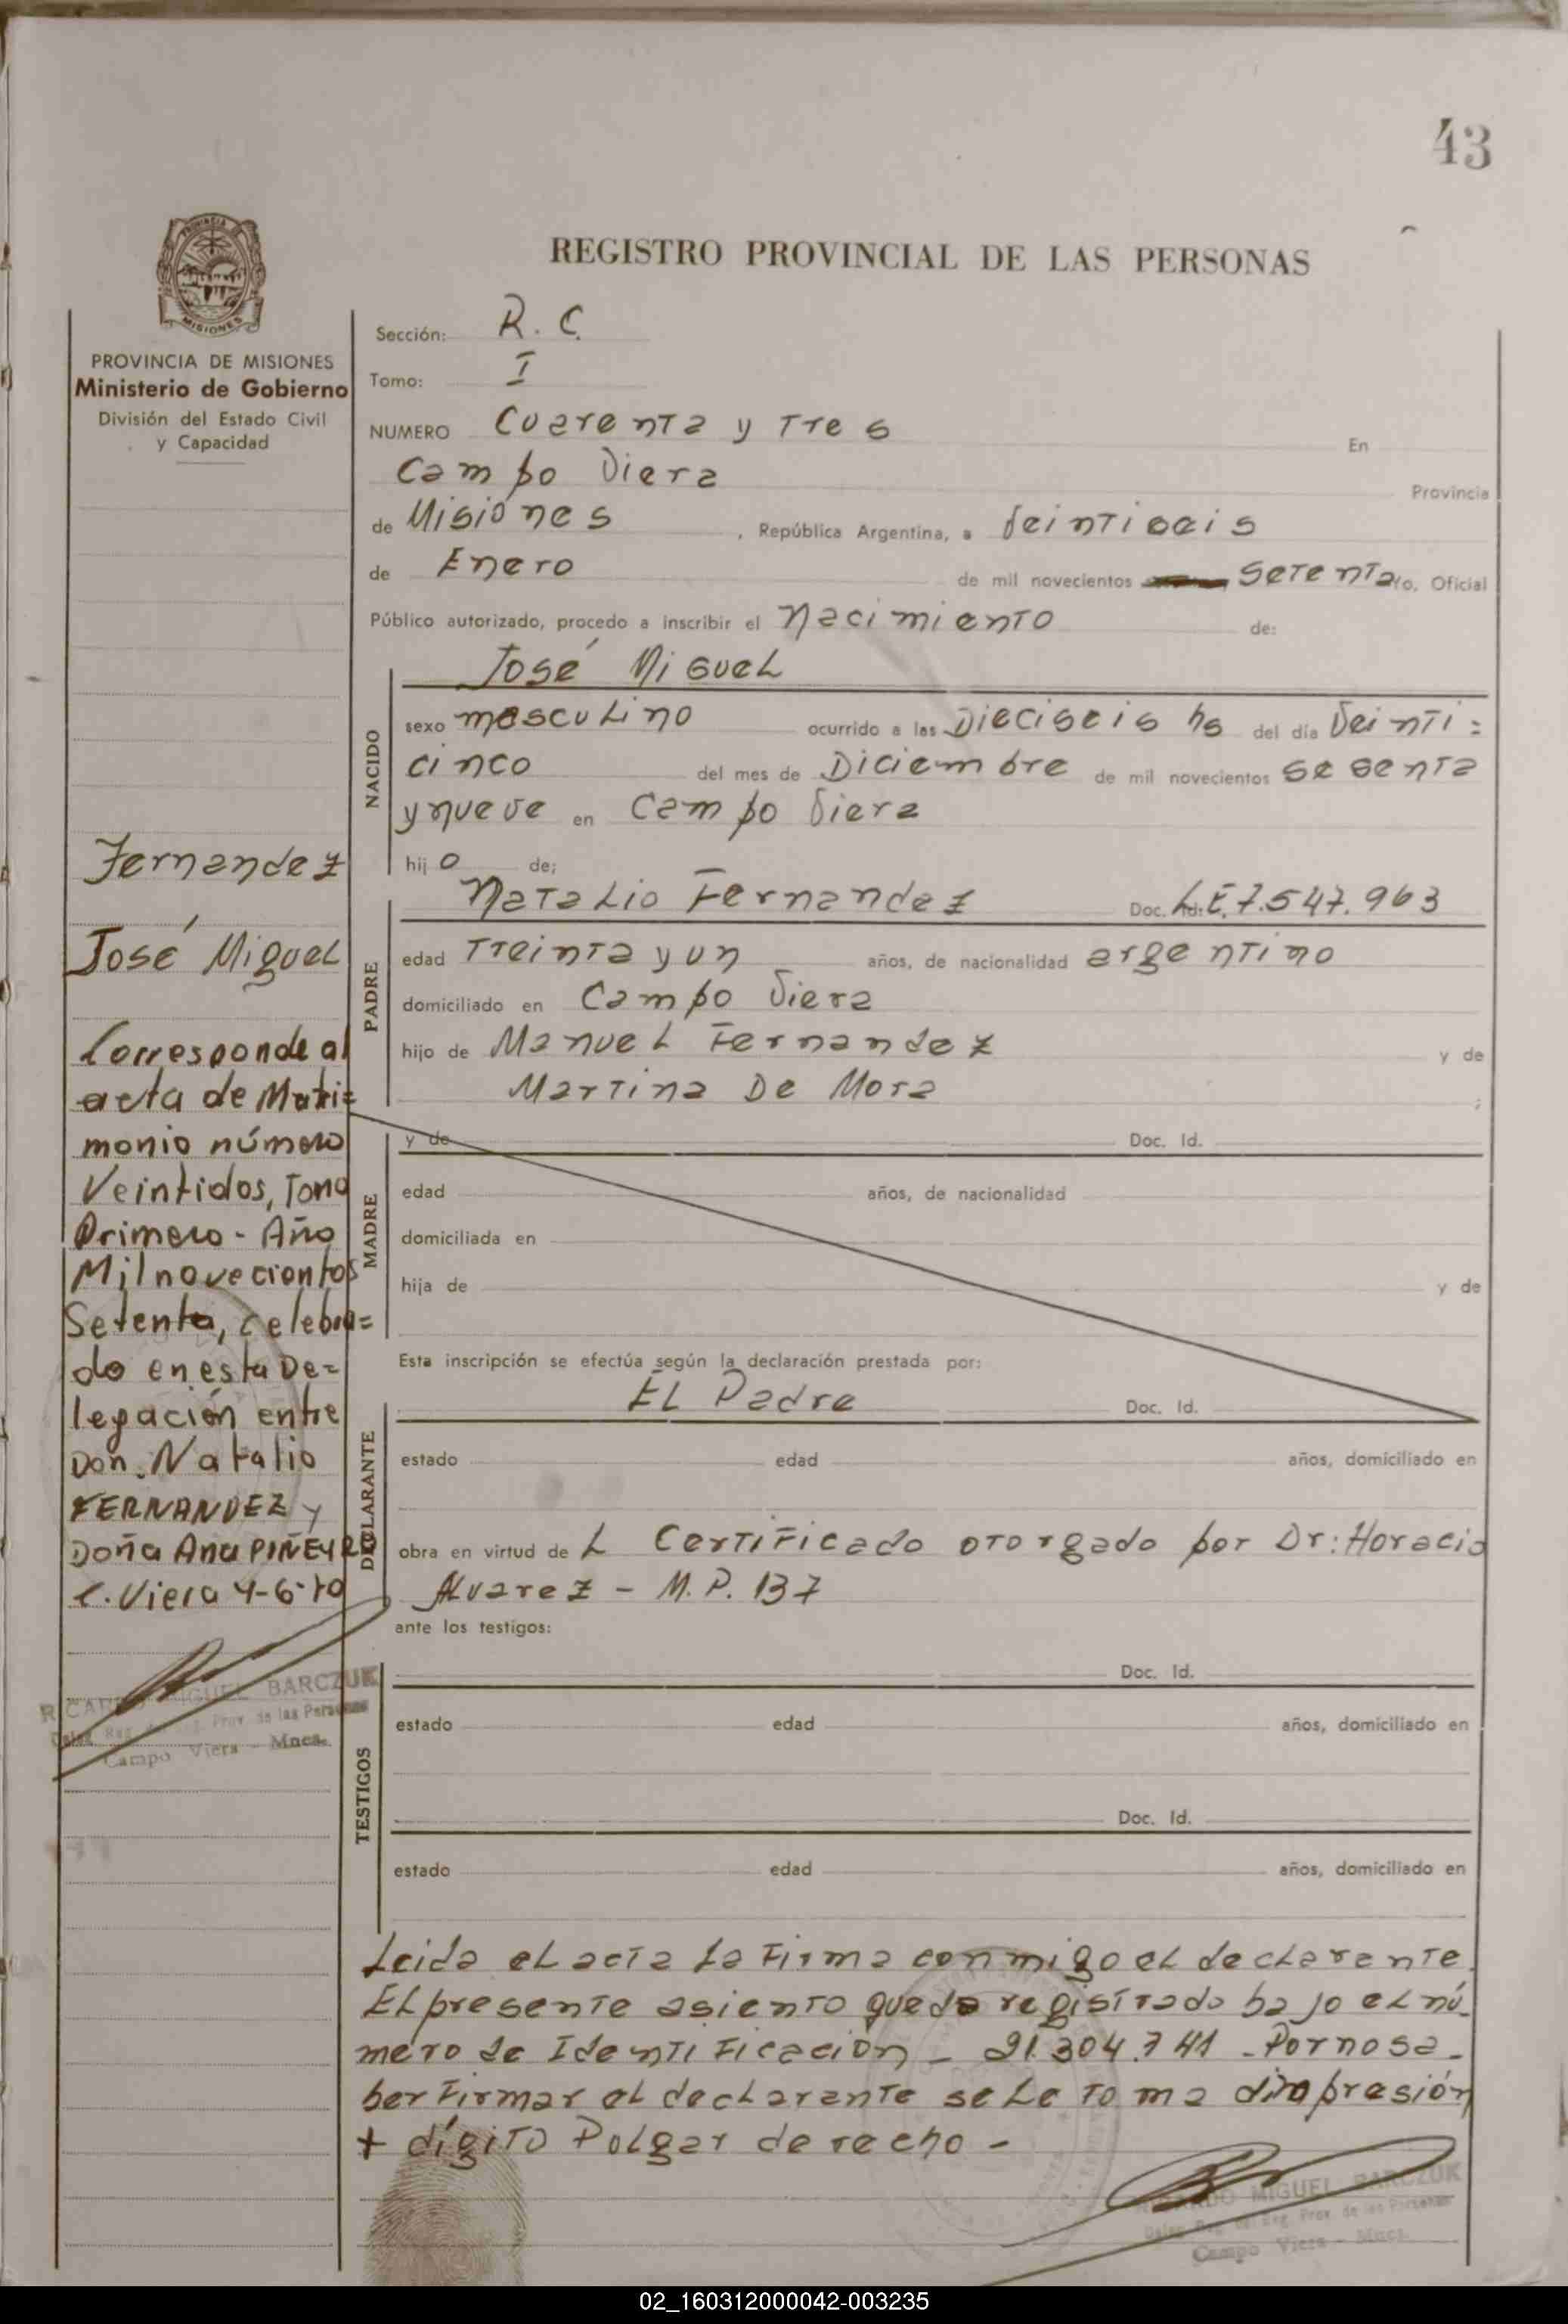 43
REGISTRO PROVINCIAL DE LAS PERSONAS
PROVINCIA DE MISIONES
Ministerio de Gobierno
División del Estado Civil
y Capacidad
Sección: R. C.
Tomo: I
NUMERO Cuarenta y Tres En
Campo Viera Provincia
de Misiones, República Argentina, a Veintiseis
de Enero de mil novecientos Setenta Yo, Oficial
Público autorizado, procedo a inscribir el Nacimiento de:
José Miguel
NACIDO
sexo masculino ocurrido a las Dieciseis hs del día Veinti=
cinco del mes de Diciembre de mil novecientos sesenta
y nueve en Campo Viera
hijo de;
Natalio Fernandez Doc. Id. L.E. 7.547.963
PADRE
edad Treinta y un años, de nacionalidad argentino
domiciliado en Campo Viera
hijo de Manuel Fernandez y de
Martina De Mora ;
y de Doc. Id.
MADRE
edad años, de nacionalidad
domiciliada en
hija de y de
Esta inscripción se efectúa según la declaración prestada por:
El Padre Doc. Id.
DECLARANTE
estado edad años, domiciliado en
obra en virtud de L Certificado otorgado por Dr: Horacio
Alvarez - M.P. 137
ante los testigos:
Doc. Id.
TESTIGOS
estado edad años, domiciliado en
Doc. Id.
estado edad años, domiciliado en
Leida el acta La Firma conmigo el declarante.
El presente asiento queda registrado bajo el nú-
mero de Identificación - 21.304.741 - Por no sa-
ber Firmar el declarante se Le toma impresión
+ dígito Pulgar derecho -
Fernandez
José Miguel
Corresponde al
acta de Matri=
monio número
Veintidos, Tomo
Primero - Año
Mil novecientos
Setenta, celebra=
do en esta De=
legación entre
Don. Natalio
FERNANDEZ y
Doña Ana PIÑEYRO
C. Viera 4-6-70
RICARDO MIGUEL BARCZUK
Deleg. Reg. Prov. de las Personas
Campo Viera - Mnes.
RICARDO MIGUEL BARCZUK
Deleg. Reg. Prov. de las Personas
Campo Viera - Mnes.
02_160312000042-003235